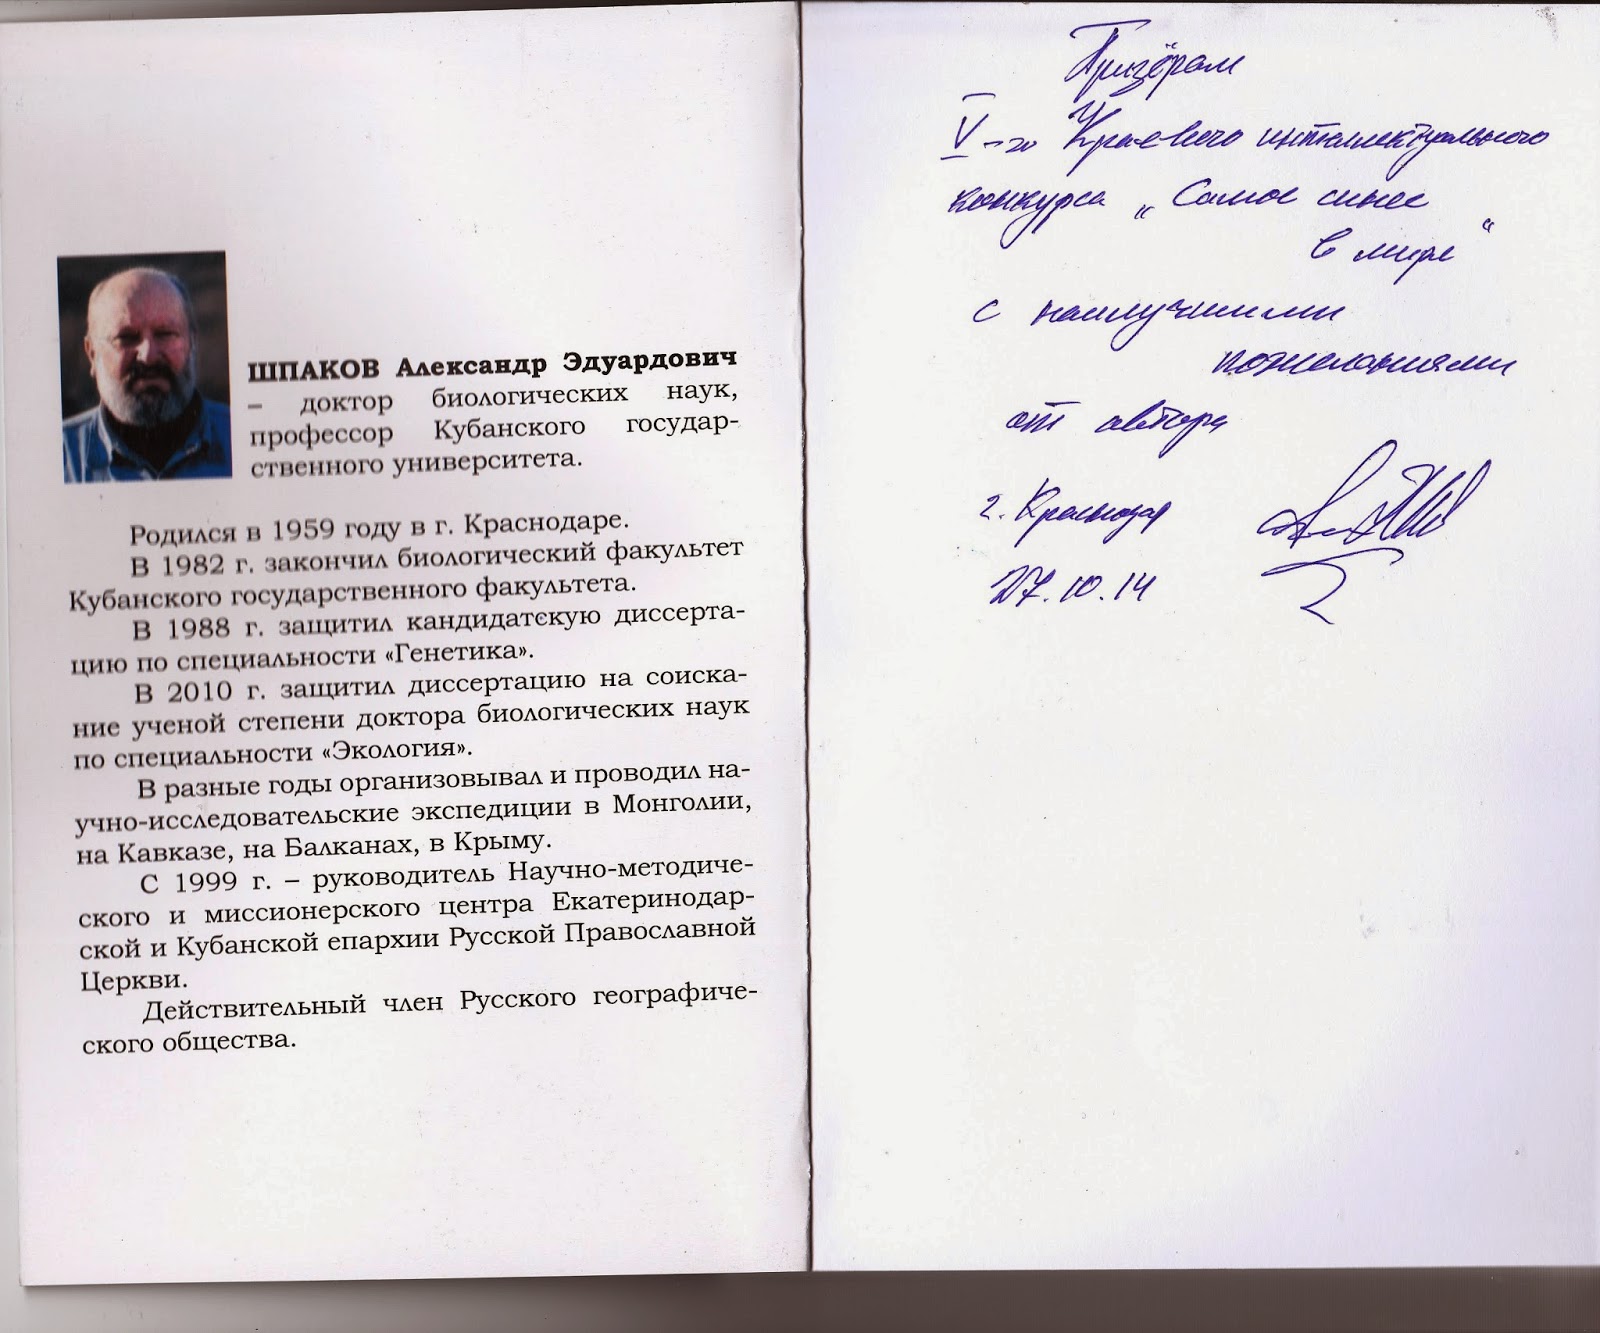 ШПАКОВ Александр Эдуардович
– доктор биологических наук,
профессор Кубанского государ-
ственного университета.
Родился в 1959 году в г. Краснодаре.
В 1982 г. закончил биологический факультет
Кубанского государственного факультета.
В 1988 г. защитил кандидатскую диссерта-
цию по специальности «Генетика».
В 2010 г. защитил диссертацию на соиска-
ние ученой степени доктора биологических наук
по специальности «Экология».
В разные годы организовывал и проводил на-
учно-исследовательские экспедиции в Монголии,
на Кавказе, на Балканах, в Крыму.
С 1999 г. – руководитель Научно-методиче-
ского и миссионерского центра Екатеринодар-
ской и Кубанской епархии Русской Православной
Церкви.
Действительный член Русского географиче-
ского общества.
Призёрам
V-го Краевого интеллектуального
конкурса „Самое синее
в мире“
с наилучшими
пожеланиями
от автора
г. Краснодар
27.10.14